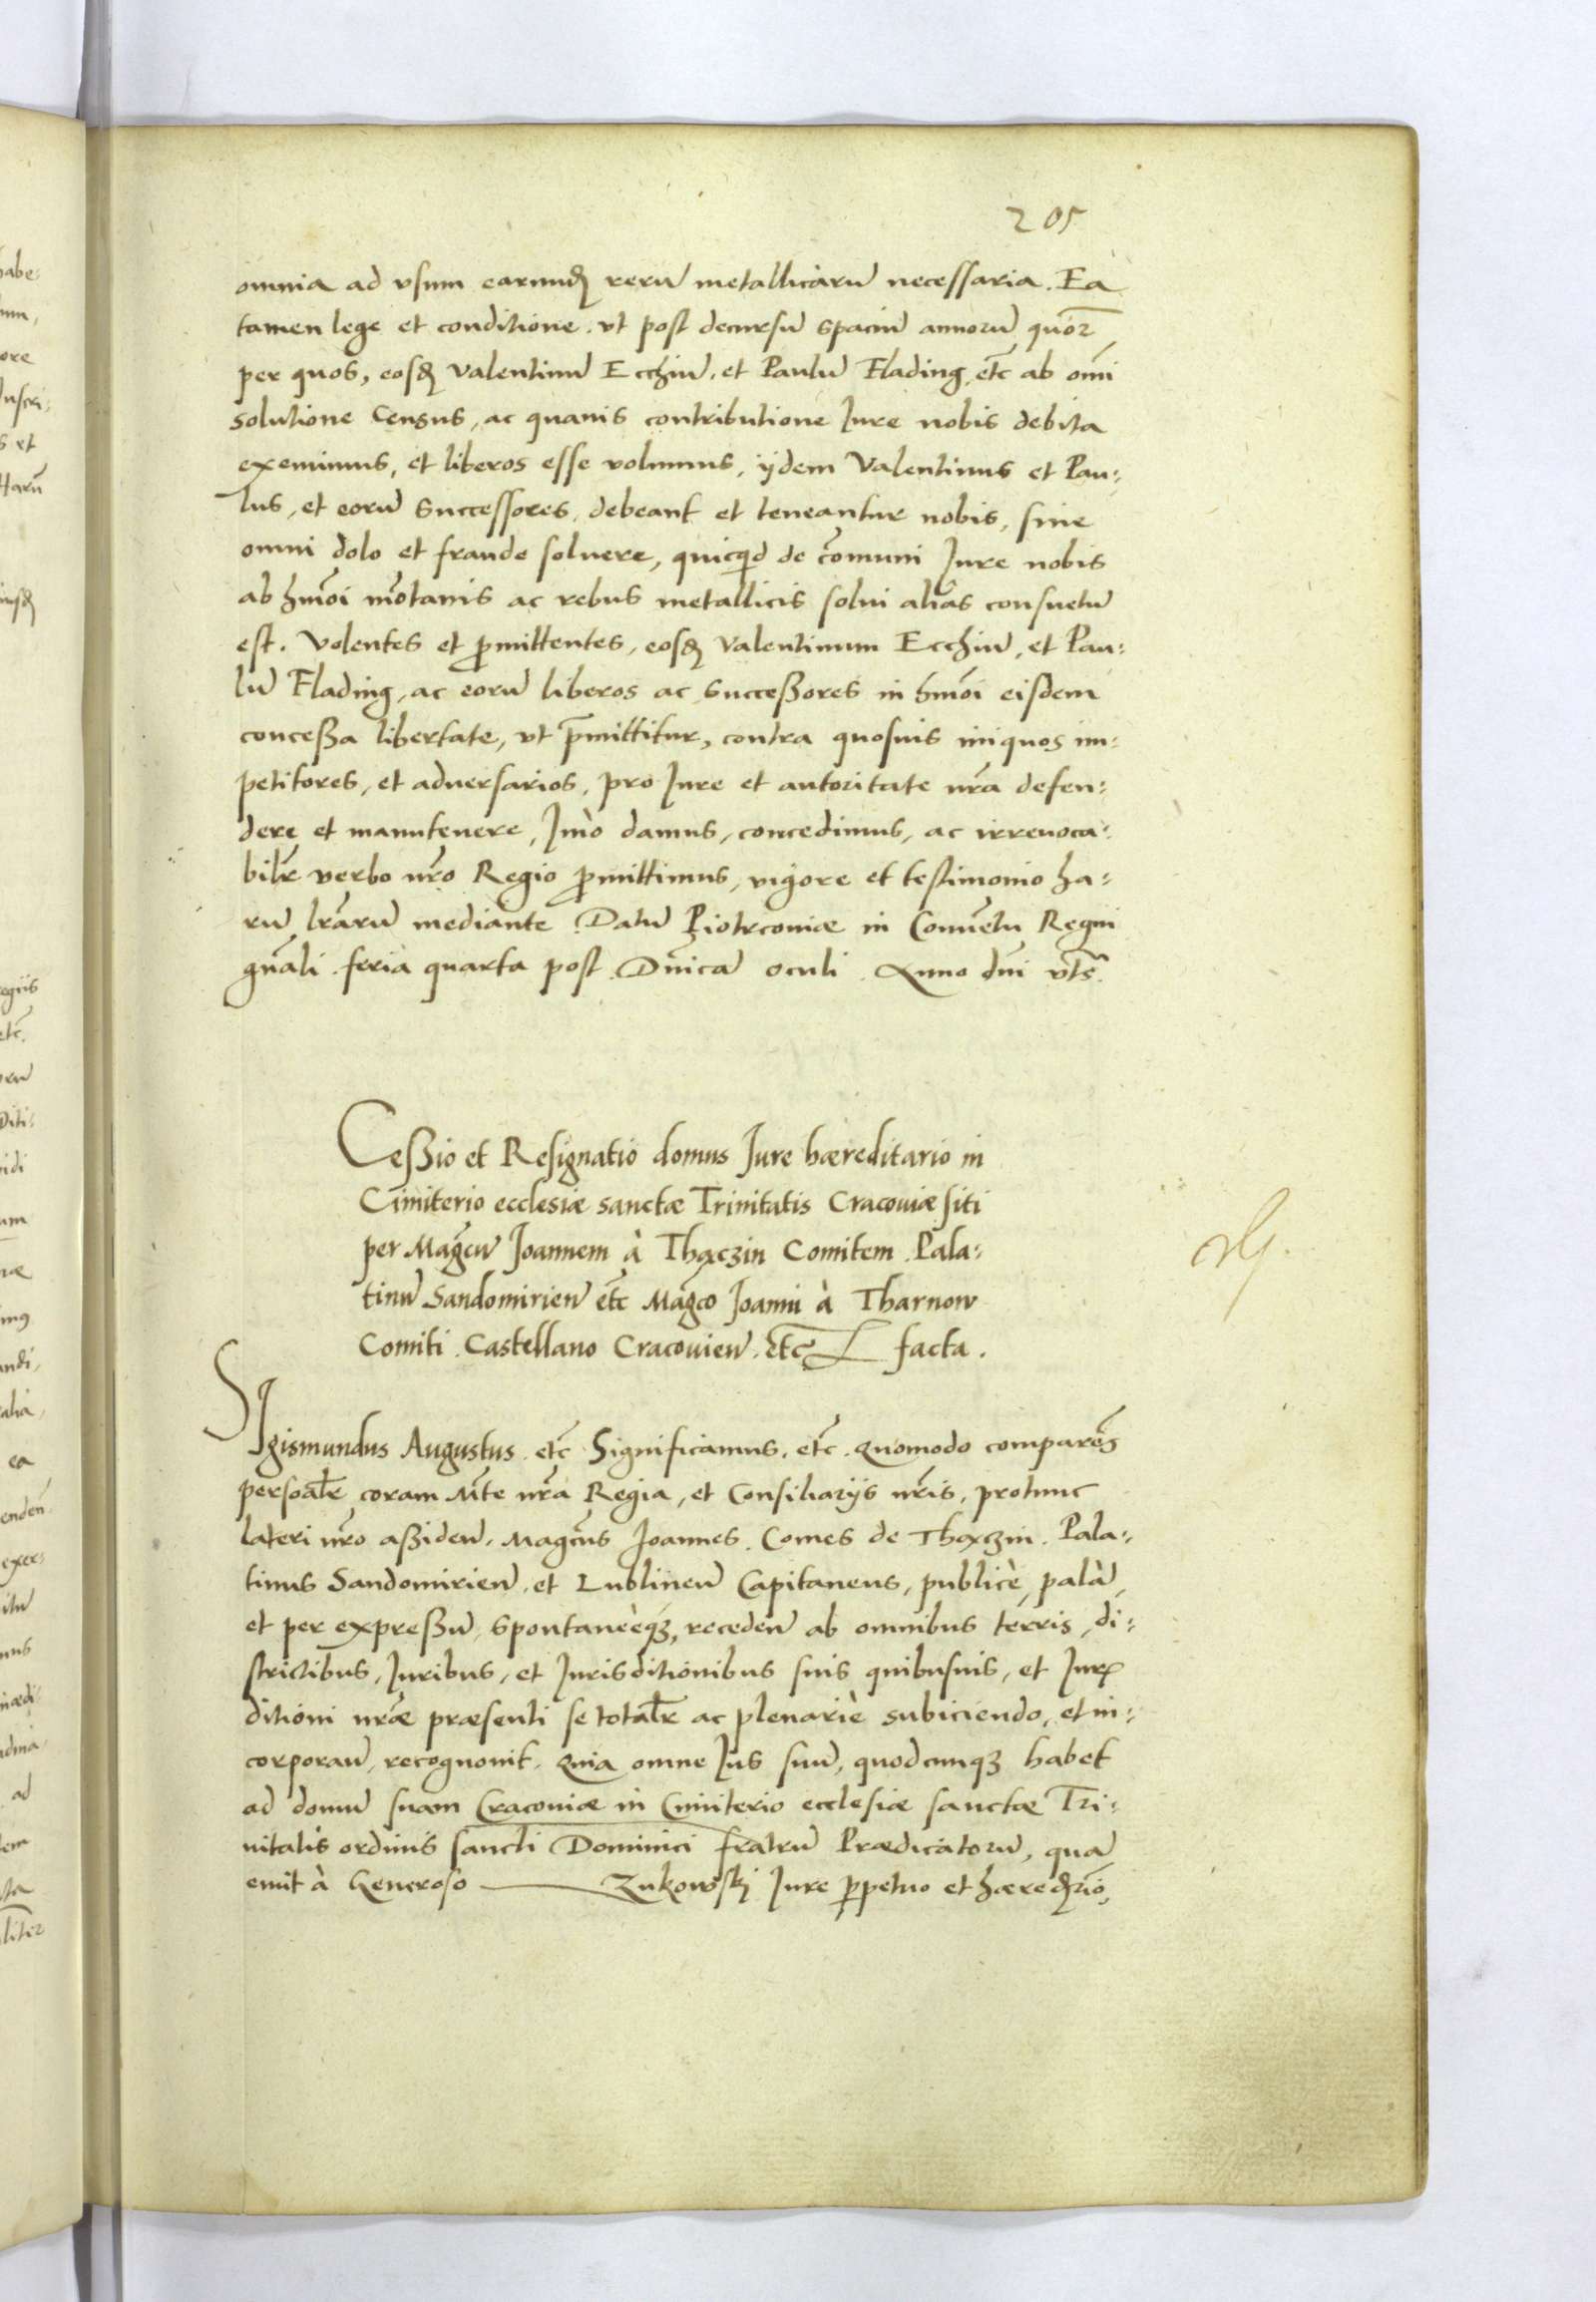 205
omnia ad vsum earundẽ rerũ metallicarũ necessaria. Ea
tamen lege et conditione. vt post decursũ spaciũ annorũ quor̃
per quos, eosdẽ Valentinũ Ecchiũ, et Paulũ Flading, etc̃ ab om̃i
solutione Census, ac quauis contributione Iure nobis debita
exemimus, et liberos esse volumus, ijdem Valentinus et Pau:
lus, et eorũ Successores, debeant et teneantur nobis, sine
omni dolo et fraude soluere, quicq̃d de cõmuni Iure nobis
ab hm̃oi mõtanis ac rebus metallicis solui aliãs consuetũ
est. Volentes et p̃mittentes, eosdẽ Valentinum Ecchiũ, et Pau:
lũ Flading, ac eorũ liberos ac Succeßores in hm̃oi eisdem
conceßa libertate, vt p̃mittitur, contra quosuis iniquos im:
petitores, et aduersarios, pro Iure et autoritate nr̃a defen:
dere et manutenere, Imò damus, concedimus, ac irreuoca:
bilr̃ verbo nr̃o Regio p̃mittimus, vigore et testimonio ha:
rũ lr̃arũ mediante. Datũ Piotrcouiæ in Conuẽtu Regni
gñali. feria quarta post Dñicã Oculi. Anno dñi vts̃.
Ceßio et Resignatio domus Iure hæreditario in
Cimiterio ecclesiæ sanctæ Trinitatis Cracouiæ siti
per Magc̃ũ Joannem à Thaczin Comitem Pala:
tinũ Sandomirieñ etc̃ Magc̃o Joanni à Tharnow
Comiti. Castellano Cracouieñ. etc facta.
SIgismundus Augustus. etc̃ Significamus. etc̃. Quomodo comparẽs
persoalr̃ coram Mte nr̃a Regia, et Consiliarijs nr̃is, protunc
lateri nr̃o aßideñ. Magc̃us Joannes. Comes de Thaczin. Pala:
tinus Sandomirieñ. et Lublineñ Capitaneus, publicè, palã,
et per expreßũ, spontaneèq3, recedeñ ab omnibus terris, di:
strictibus, Iuribus, et Iurisditionibus suis quibusuis, et Iurx
ditioni nr̃æ præsenti se totalr̃ ac plenariè subiciendo, et in:
corporañ, recognouit. Quia omne Ius suũ, quodcunq3 habet
ad domũ suam Cracouiæ in Cimiterio ecclesiæ sanctæ Tri:
nitatis ordinis sancti Dominici fratrũ Prædicatorũ, quã
emit à Generoso ——— Zukowskj Iure p̃petuo et hæredr̃io,